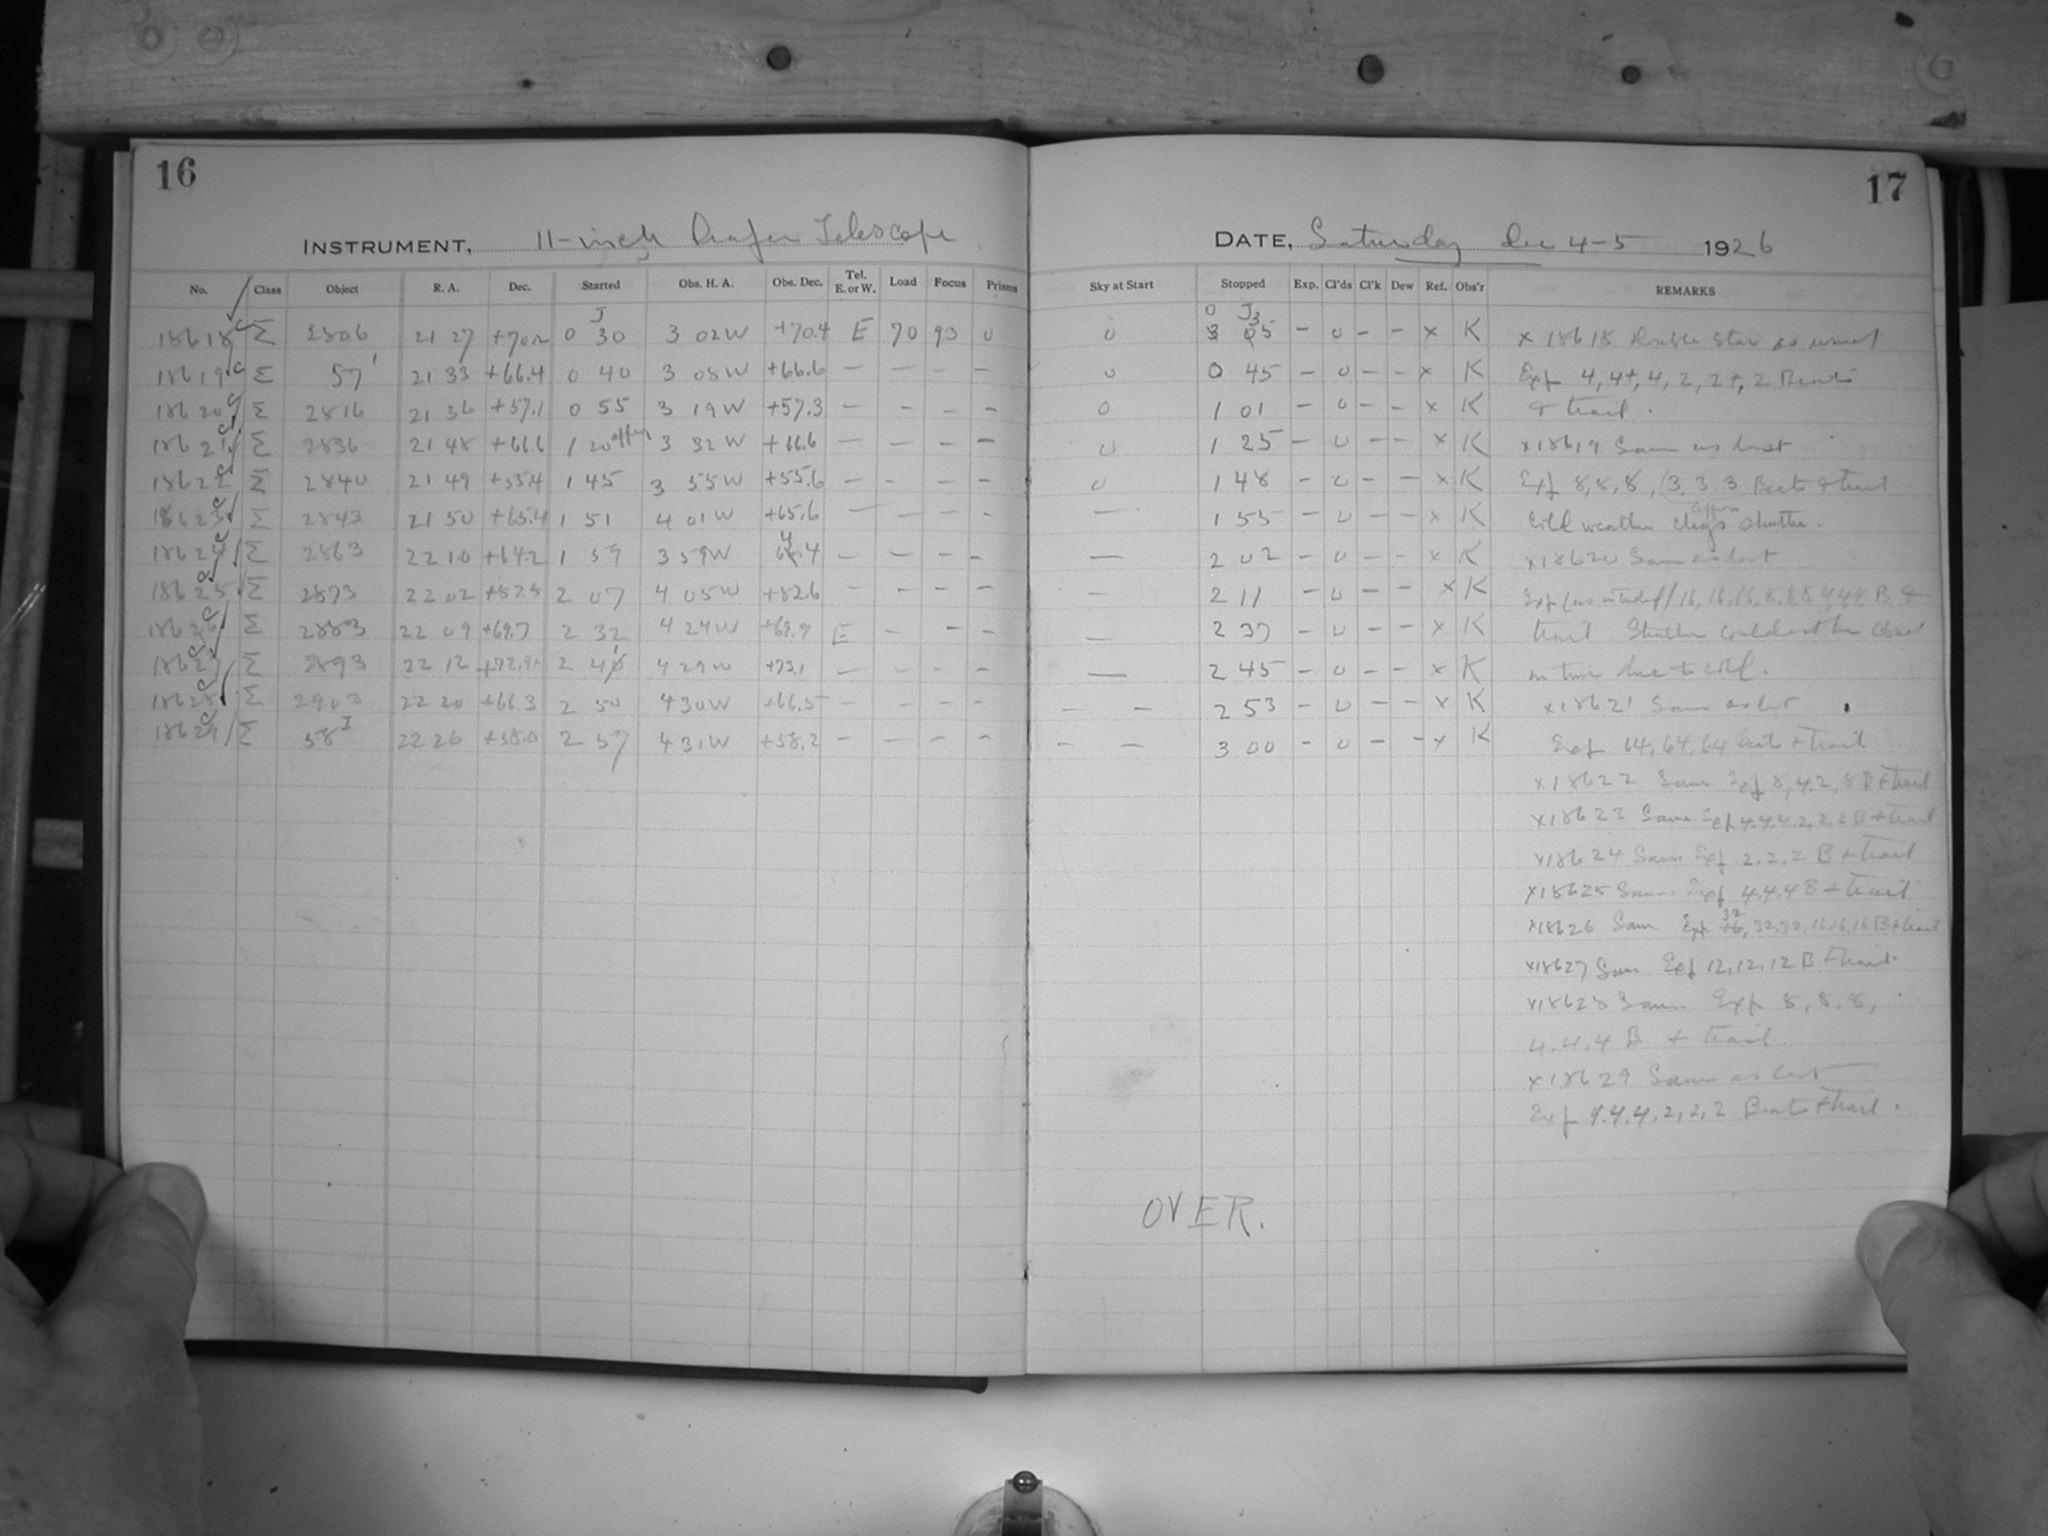 16
17
INSTRUMENT, 11-inch Draper Telescope
DATE, Saturday Dec 4-5 1926
No. Class Object R. A. Dec. Started Obs. H. A. Obs. Dec. Tel. E. or W. Load Focus Prisms Sky at Start Stopped Exp. Cl'ds Cl'k Dew Ref. Obs'r REMARKS
18618 Σ 2806 21 27 +70.2 0 30 3 02W +70.4 E 70 93 0 0 – 0 – – x K x 18618 Double Star as usual
18619 Σ 57 21 33 +66.4 0 40 3 08W +66.6 – – – – 0 0 45 – 0 – – x K Exp 4, 4+, 4, 2, 2+, 2 Beats
18620 Σ 2816 21 36 +57.1 0 55 3 19W +57.3 – – – – 0 1 01 – 0 – – x K & trail.
18621 Σ 2836 21 48 +66.6 1 20 3 32W +66.6 – – – – 0 1 25 – 0 – – x K x18619 Same as last
18622 Σ 2840 21 49 +55.4 1 45 3 55W +55.6 – – – – 0 1 48 – 0 – – x K Exp 8, 8, 8, 3, 3, 3 Beats & trail
18623 Σ 2843 21 50 +65.4 1 51 4 01W +65.6 – – – – — 1 55 – 0 – – x K Cold weather shutter.
18624 Σ 2863 22 10 +64.2 1 59 3 59W 64.4 – – – – — 2 02 – 0 – – x K x18620 Same as last
18625 Σ 2873 22 02 +82.5 2 07 4 05W +82.6 – – – – — 2 11 – 0 – – x K Exp (as intended) 16, 16, 16, 8, 8, 8 4 4 4 B &
18626 Σ 2883 22 09 +69.7 2 32 4 24W +69.9 E – – – — 2 37 – 0 – – x K trail. Shutter could not be closed
18627 Σ 2893 22 12 +72.9 2 41 4 29W +73.1 – – – – — 2 45 – 0 – – x K in time due to cold.
18628 Σ 2903 22 20 +66.3 2 50 4 30W +66.5 – – – – – – 2 53 – 0 – – x K x18621 Same as last
18629 Σ 58 I 22 26 +58.0 2 57 4 31W +58.2 – – – – – – 3 00 – 0 – – x K Exp 64, 64, 64 beats + trail
x18622 Same Exp 8, 4, 2, 8 B + trail
x18623 Same Exp 4.4.4.2,2,2 B + trail
x18624 Same Exp 2.2.2 B + trail
x18625 Same. Exp 4.4.4 B + trail
x18626 Same Exp 32, 32, 32, 16,16,16 B + trail
x18627 Same Exp 12, 12, 12 B + trail.
x18628 Same Exp 8, 8. 8,
4.4.4 B + trail.
x18629 Same as last
Exp 4.4.4, 2, 2, 2 Beats + trail.
OVER.